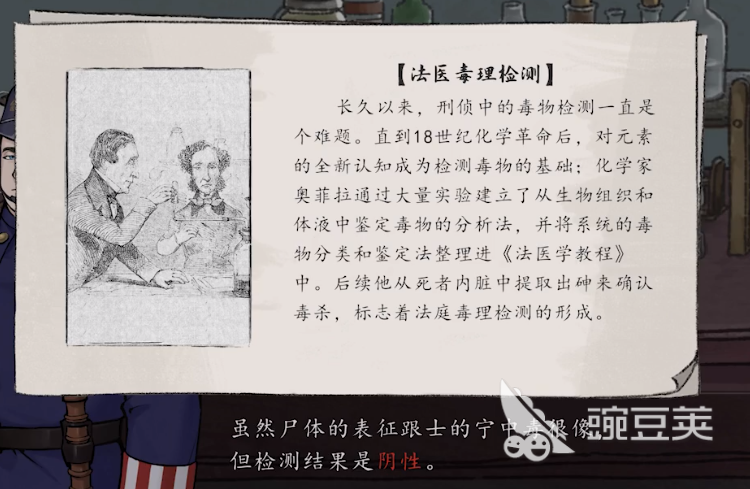 【法医毒理检测】
长久以来，刑侦中的毒物检测一直是
个难题。直到18世纪化学革命后，对元素
的全新认知成为检测毒物的基础；化学家
奥菲拉通过大量实验建立了从生物组织和
体液中鉴定毒物的分析法，并将系统的毒
物分类和鉴定法整理进《法医学教程》
中。后续他从死者内脏中提取出砷来确认
毒杀，标志着法庭毒理检测的形成。
虽然尸体的表征跟士的宁中毒很像，
但检测结果是阴性。
豌豆荚